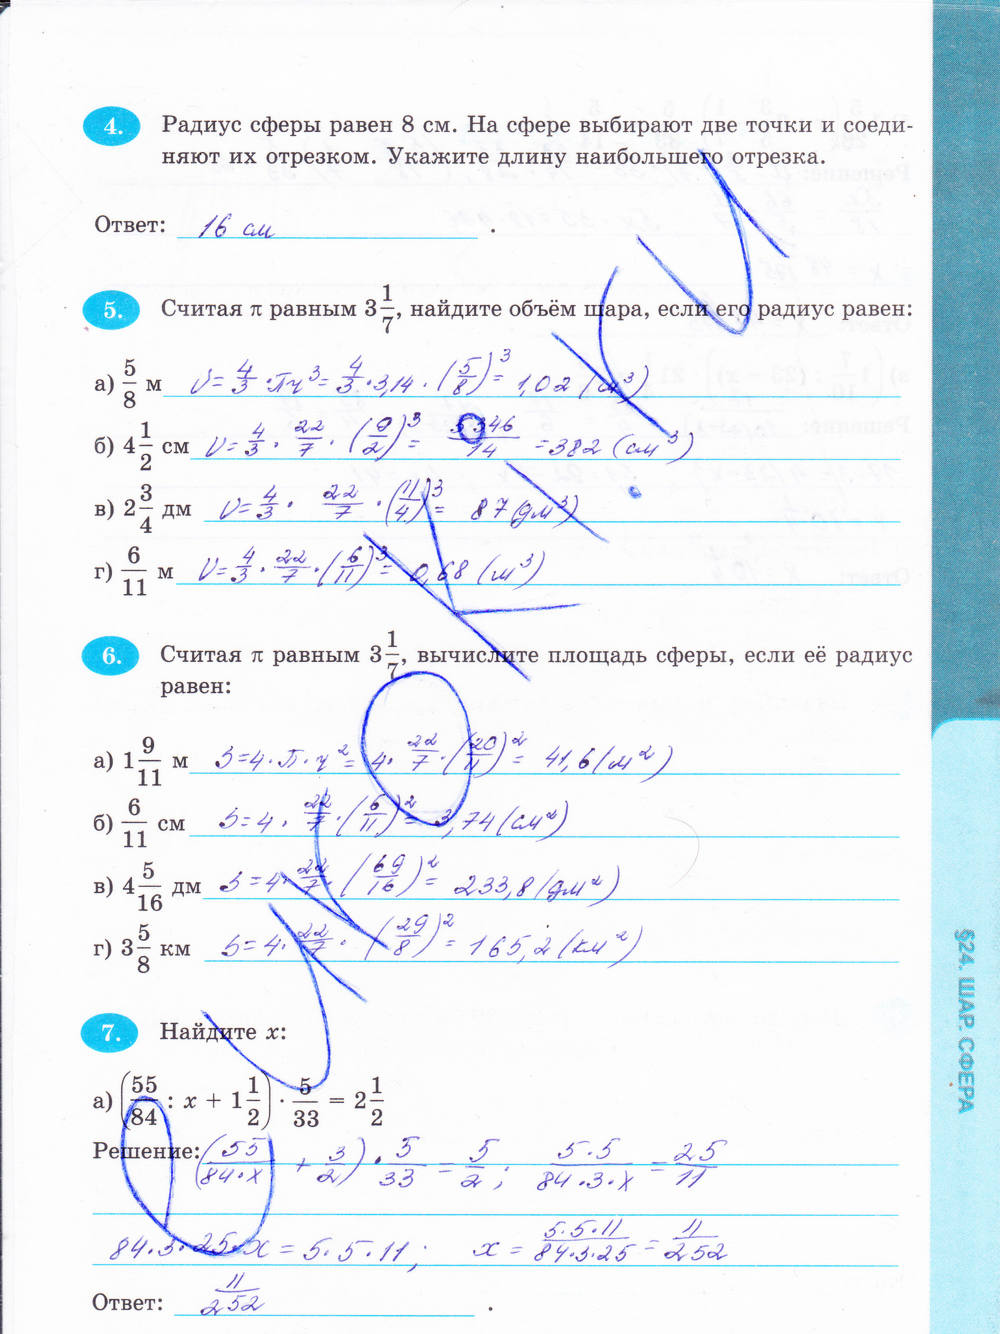 4. Радиус сферы равен 8 см. На сфере выбирают две точки и соеди-
няют их отрезком. Укажите длину наибольшего отрезка.
Ответ: 16 см .
5. Считая π равным 3 1/7, найдите объём шара, если его радиус равен:
а) 5/8 м V = 4/3 · πч³ = 4/3 · 3,14 · (5/8)³ = 1,02 (м³)
б) 4 1/2 см V = 4/3 · 22/7 · (9/2)³ = 5346/14 = 382 (см³)
в) 2 3/4 дм V = 4/3 · 22/7 · (11/4)³ = 87 (дм³)
г) 6/11 м V = 4/3 · 22/7 · (6/11)³ = 0,68 (м³)
6. Считая π равным 3 1/7, вычислите площадь сферы, если её радиус
равен:
а) 1 9/11 м S = 4 · π · ч² = 4 · 22/7 · (20/11)² = 41,6 (м²)
б) 6/11 см S = 4 · 22/7 · (6/11)² = 3,74 (см²)
в) 4 5/16 дм S = 4 · 22/7 · (69/16)² = 233,8 (дм²)
г) 3 5/8 км S = 4 · 22/7 · (29/8)² = 165,2 (км²)
7. Найдите x:
а) (55/84 : x + 1 1/2) · 5/33 = 2 1/2
Решение: (55/84·x + 3/2) · 5/33 = 5/2; 5·5/84·3·x = 25/11
84·3·25·x = 5·5·11; x = 5·5·11/84·3·25 = 11/252
Ответ: 11/252 .
§24. ШАР. СФЕРА